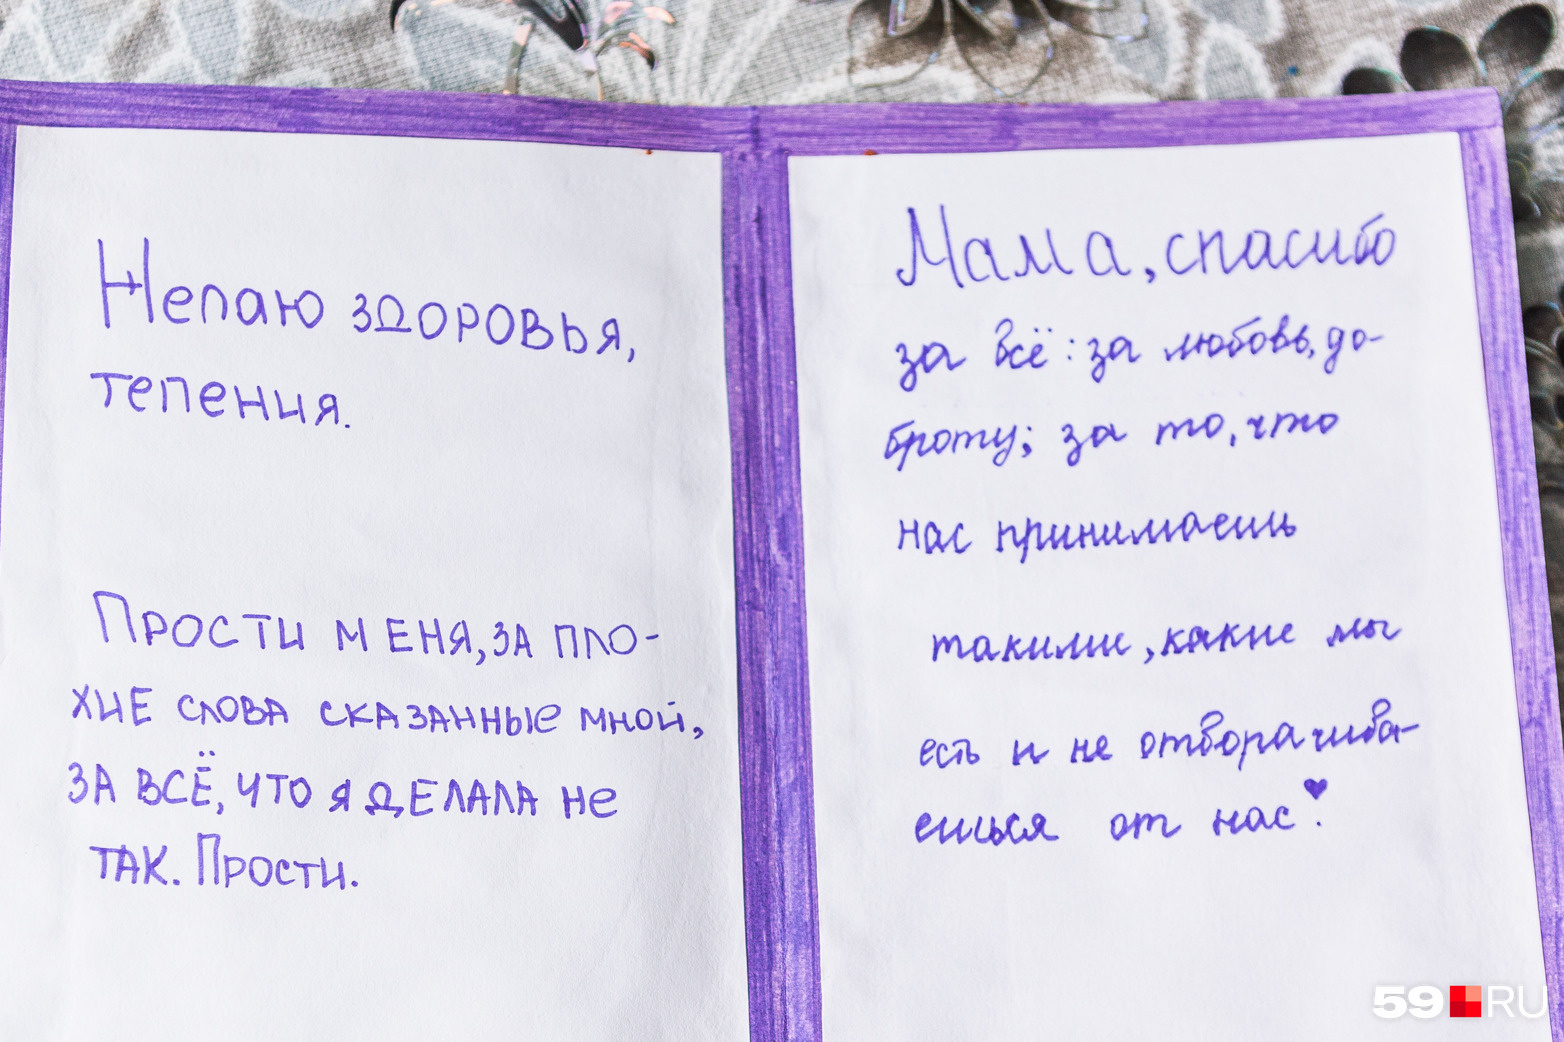 Желаю здоровья,
терпения.
Прости меня, за пло-
хие слова сказанные мной,
за всё, что я делала не
так. Прости.
Мама, спасибо
за всё: за любовь, до-
броту; за то, что
нас принимаешь
такими, какие мы
есть и не отворачива-
ешься от нас!
59.RU